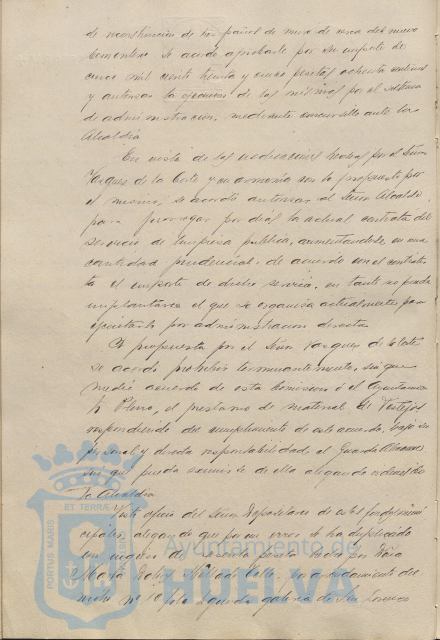 de reconstrucción de los paños de muro de cerca del nuevo
Cementerio se acordó aprobarle por su importe de
cinco mil ciento treinta y cinco pesetas ochenta céntimos
y autorizar la ejecución de los mismos por el sistema
de administración, mediante concursillo ante la
Alcaldía
En vista de las indicaciones hechas por el Señor
Vazquez de la Corte y en armonía con lo propuesto por
el mismo se acordó autorizar al Señor Alcalde
para prorrogar por días la actual contrata del
servicio de limpieza pública, aumentándole en una
cantidad prudencial, de acuerdo con el contratis
ta el importe de dicho servicio, en tanto se pueda
implantarse el que se organiza actualmente para
ejecutarlo por administración directa
A propuesta por el Señor Vazquez de la Corte
se acordó prohibir terminantemente, sin que
medie acuerdo de esta Comisión ó el Ayuntamien
to Pleno, el préstamo de material de Festejos
respondiendo del cumplimiento de este acuerdo, bajo su
personal y directa responsabilidad el Guarda Almacen
sin que pueda eximirse de ella alegando ordenes de
la Alcaldía
Visto oficio del Señor Depositario de estos fondos muni
cipales, alegando que por un error se ha duplicado
un ingreso de hecho por Doña
María en arrendamiento del
nicho nº 10 fila segunda galería de San Lorenzo
PORTUS MARIS
ET TERRÆ
Ayuntamiento de
HUELVA